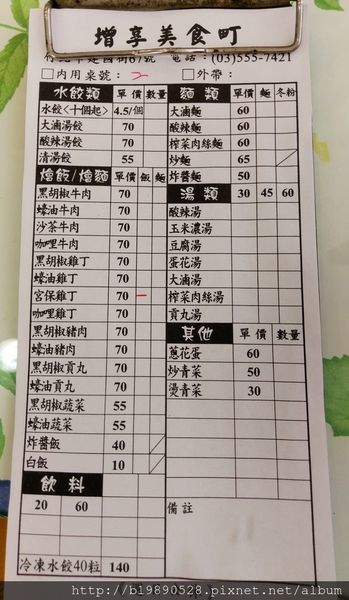 增享美食町
竹北市建國街67號 電話：(03)555-7421
內用桌號：2 外帶：
水餃類 單價 數量
水餃<十個起> 4.5/個
大滷湯餃 70
酸辣湯餃 70
清湯餃 55
燴飯/燴麵 單價 飯 麵
黑胡椒牛肉 70
蠔油牛肉 70
沙茶牛肉 70
咖哩牛肉 70
黑胡椒雞丁 70
蠔油雞丁 70
宮保雞丁 70 一
咖哩雞丁 70
黑胡椒豬肉 70
蠔油豬肉 70
黑胡椒貢丸 70
蠔油貢丸 70
黑胡椒蔬菜 55
蠔油蔬菜 55
炸醬飯 40
白飯 10
飲料
20 60
冷凍水餃40粒 140
麵類 單價 麵 冬粉
大滷麵 60
酸辣麵 60
榨菜肉絲麵 60
炒麵 65
炸醬麵 50
湯類 30 45 60
酸辣湯
玉米濃湯
豆腐湯
蛋花湯
大滷湯
榨菜肉絲湯
貢丸湯
其他 單價 數量
蔥花蛋 60
炒青菜 50
燙青菜 30
備註
http://b19890528.pixnet.net/album